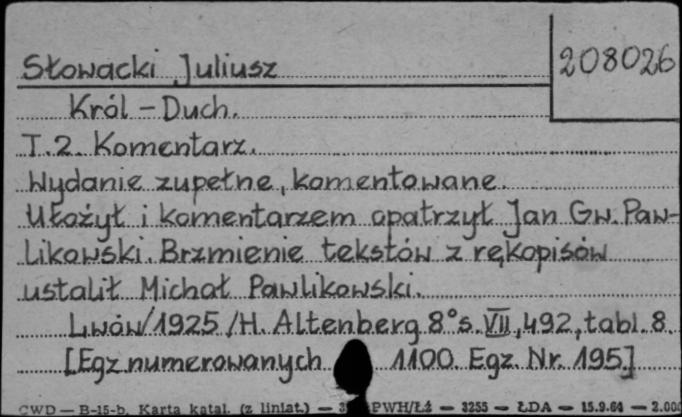 Słowacki Juliusz
208026
Król - Duch.
T.2. Komentarz.
Wydanie zupełne, komentowane.
Ułożył i komentarzem opatrzył Jan Gw. Paw-
likowski. Brzmienie tekstów z rękopisów
ustalił Michał Pawlikowski.
Lwów/1925/H. Altenberg 8° s. VII, 492, tabl. 8.
[Egz numerowanych 1100. Egz. Nr. 195.]
CWD — B-15-b. Karta katal. (z liniat.) — PWH/Łż — 3255 — ŁDA — 15.9.64 — 2.000